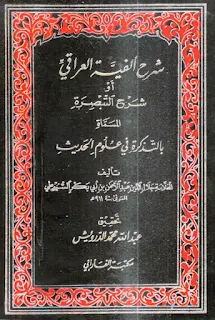 شرح ألفية العراقي
أو
شرح التبصرة
المسماة
بالتذكرة في علوم الحديث
تأليف
العلامة جلال الدين عبد الرحمن بن أبي بكر السيوطي
المتوفى سنة ٩١١هـ
تحقيق
عبد الله محمد الدرويش
مكتبة الفارابي